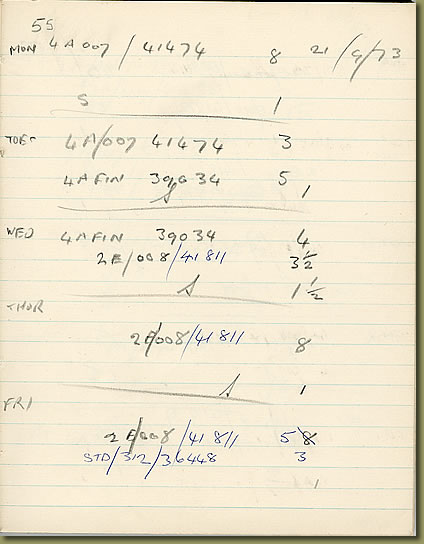 55
MON 4A007 / 41474 8 21/9/73
S 1
TUES 4A/007 41474 3
4A FIN 39034 5
S 1
WED 4A FIN 39034 4
2E/008/41811 3½
S 1½
THUR
2E/008/41811 8
S 1
FRI
2E/008/41811 5 8
STD/312/36448 3
1